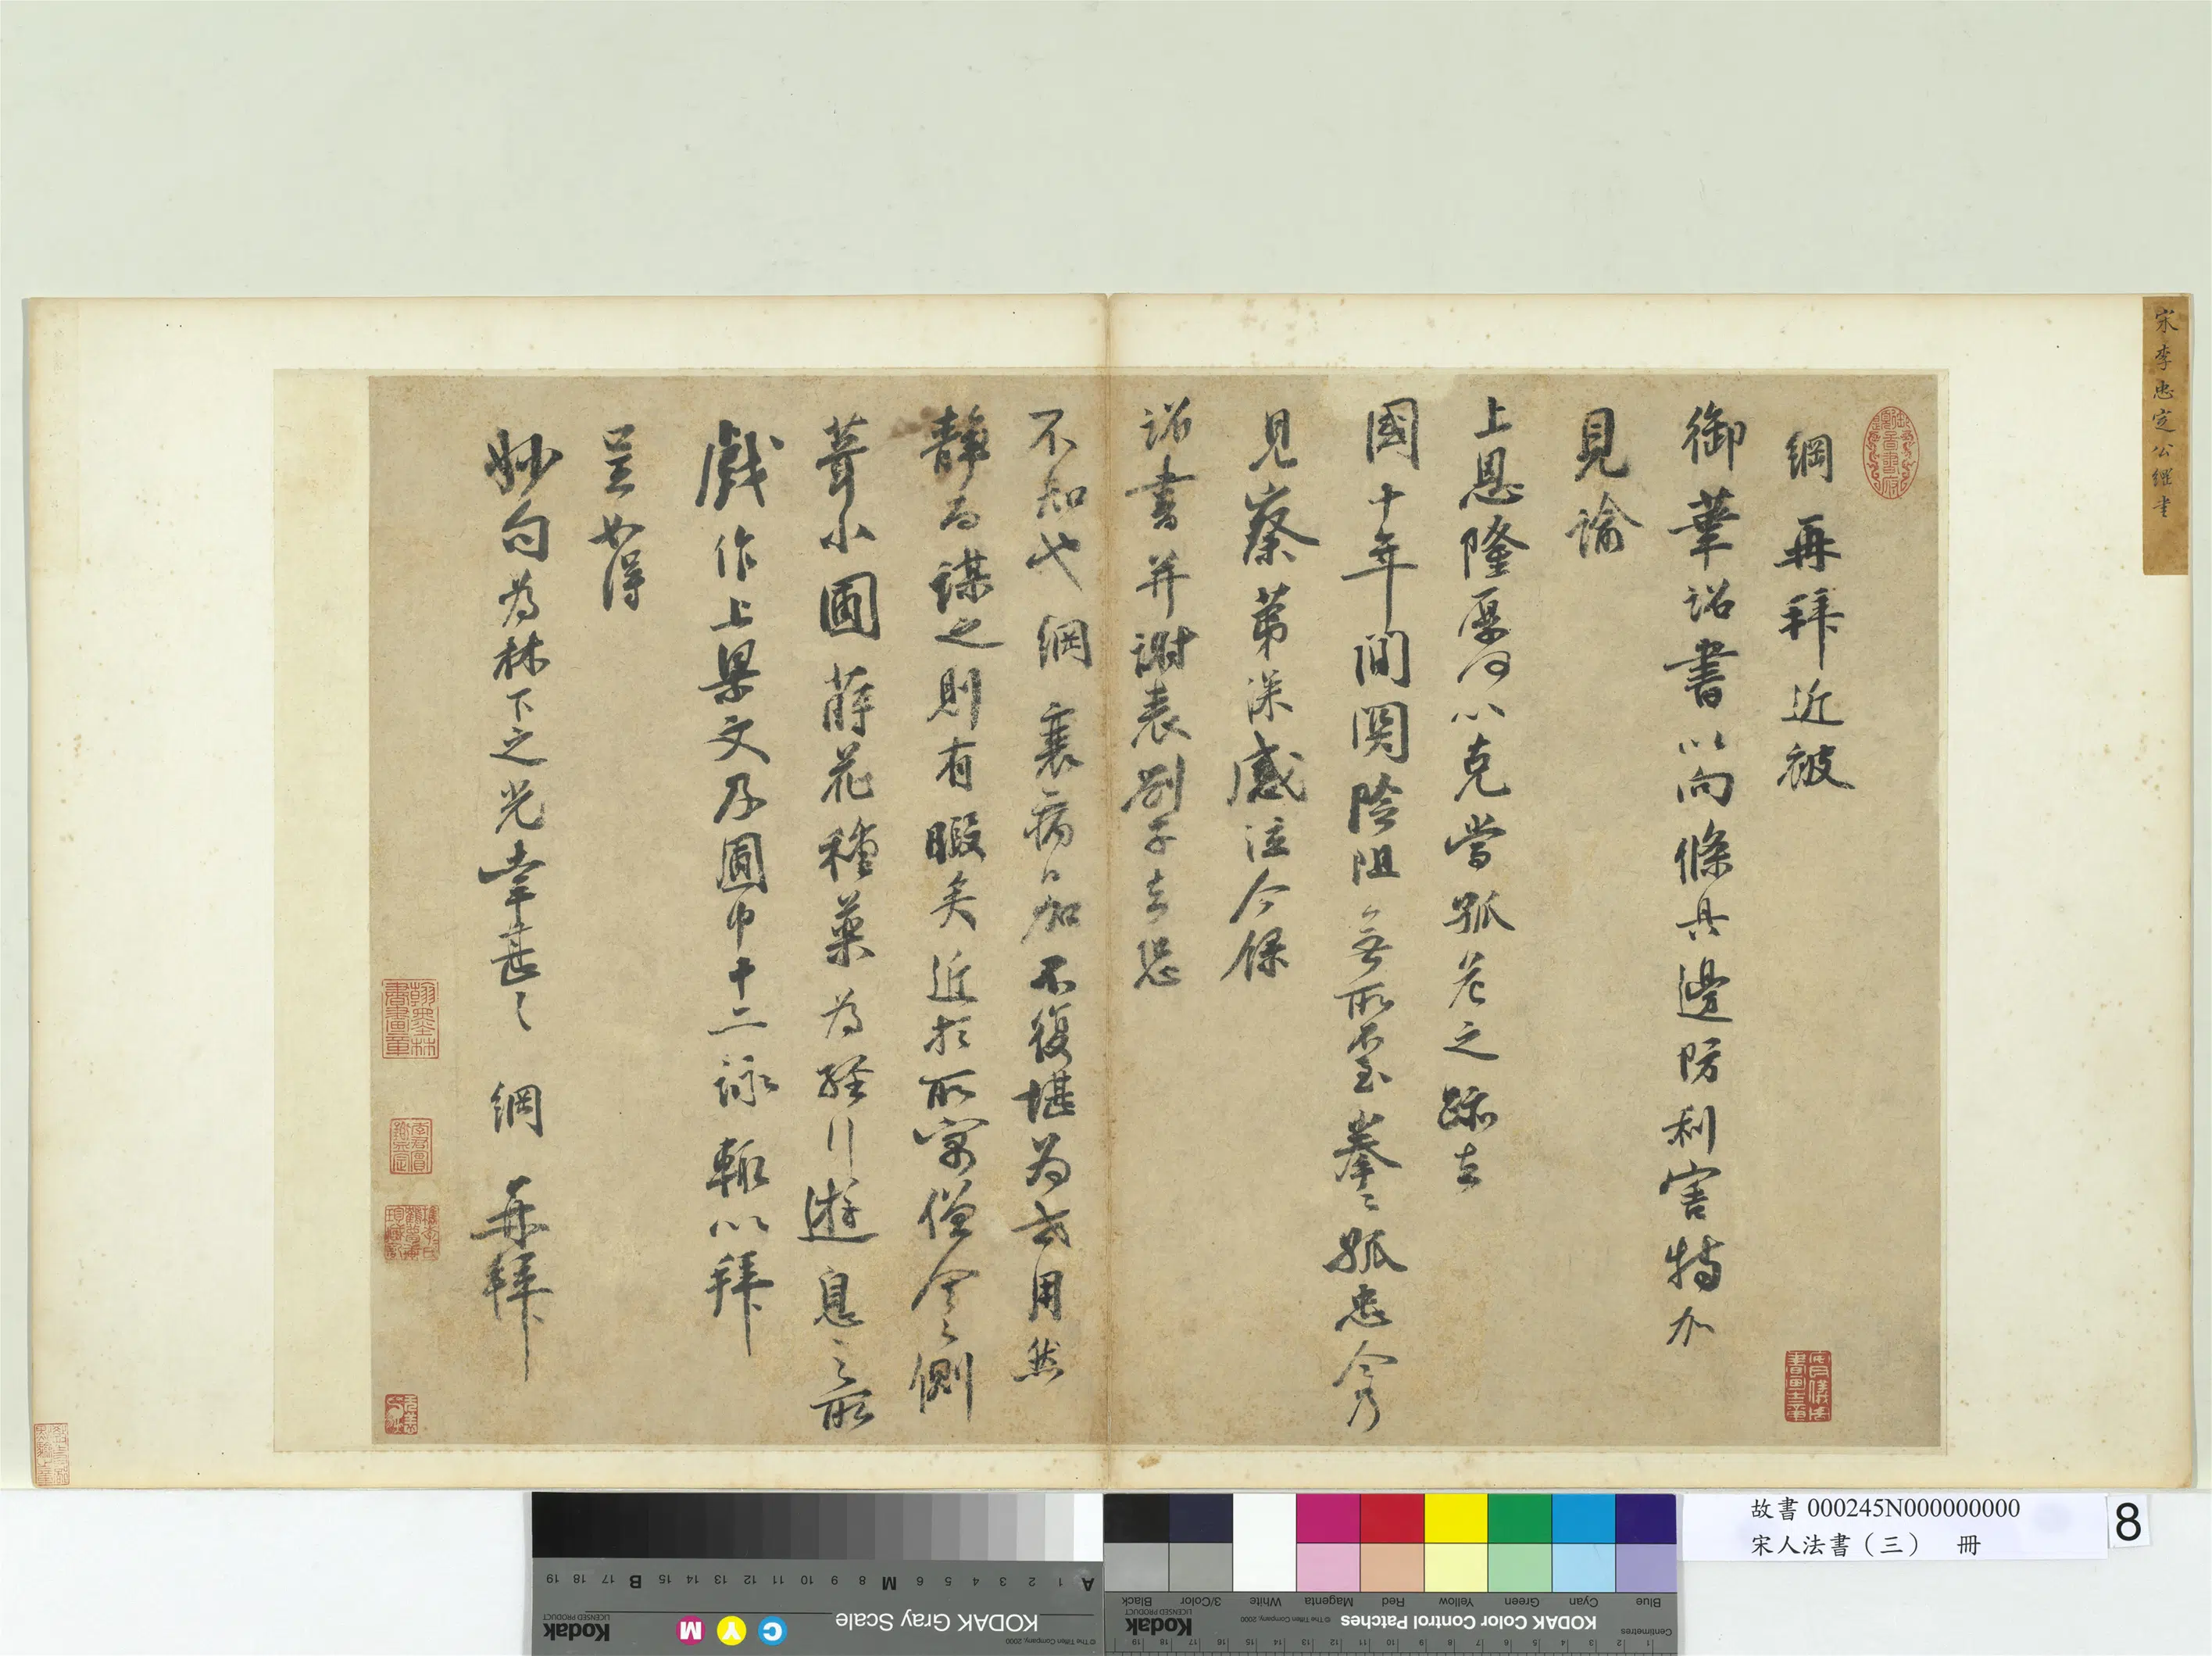 宋李忠定公綱書
綱再拜近被
御筆詔書以向條具邊防利害特加
見諭
上恩隆厚何以克當孤危之蹤去
國十年間關險阻無所不至拳拳孤忠今乃
見察第深感泣今錄
詔書并謝表劄子去恐
不知也綱衰病日加不復堪為世用然
靜而謀之則有暇矣近於所寓僧舍之側
葺小圃蒔花種藥為經行遊息之所
戲作上梁文及圃中十二詠輒以拜
呈如得
妙句為林下之光幸甚々綱再拜
故書 000245N000000000
宋人法書（三） 冊
8
KODAK Gray Scale
Kodak
LICENSED PRODUCT
© The Tiffen Company, 2000
C Y M
A 1 2 3 4 5 6 M 8 9 10 11 12 13 14 15 B 17 18 19
KODAK Color Control Patches
Kodak
LICENSED PRODUCT
© The Tiffen Company, 2000
Centimetres
Blue Cyan Green Yellow Red Magenta White 3/Color Black